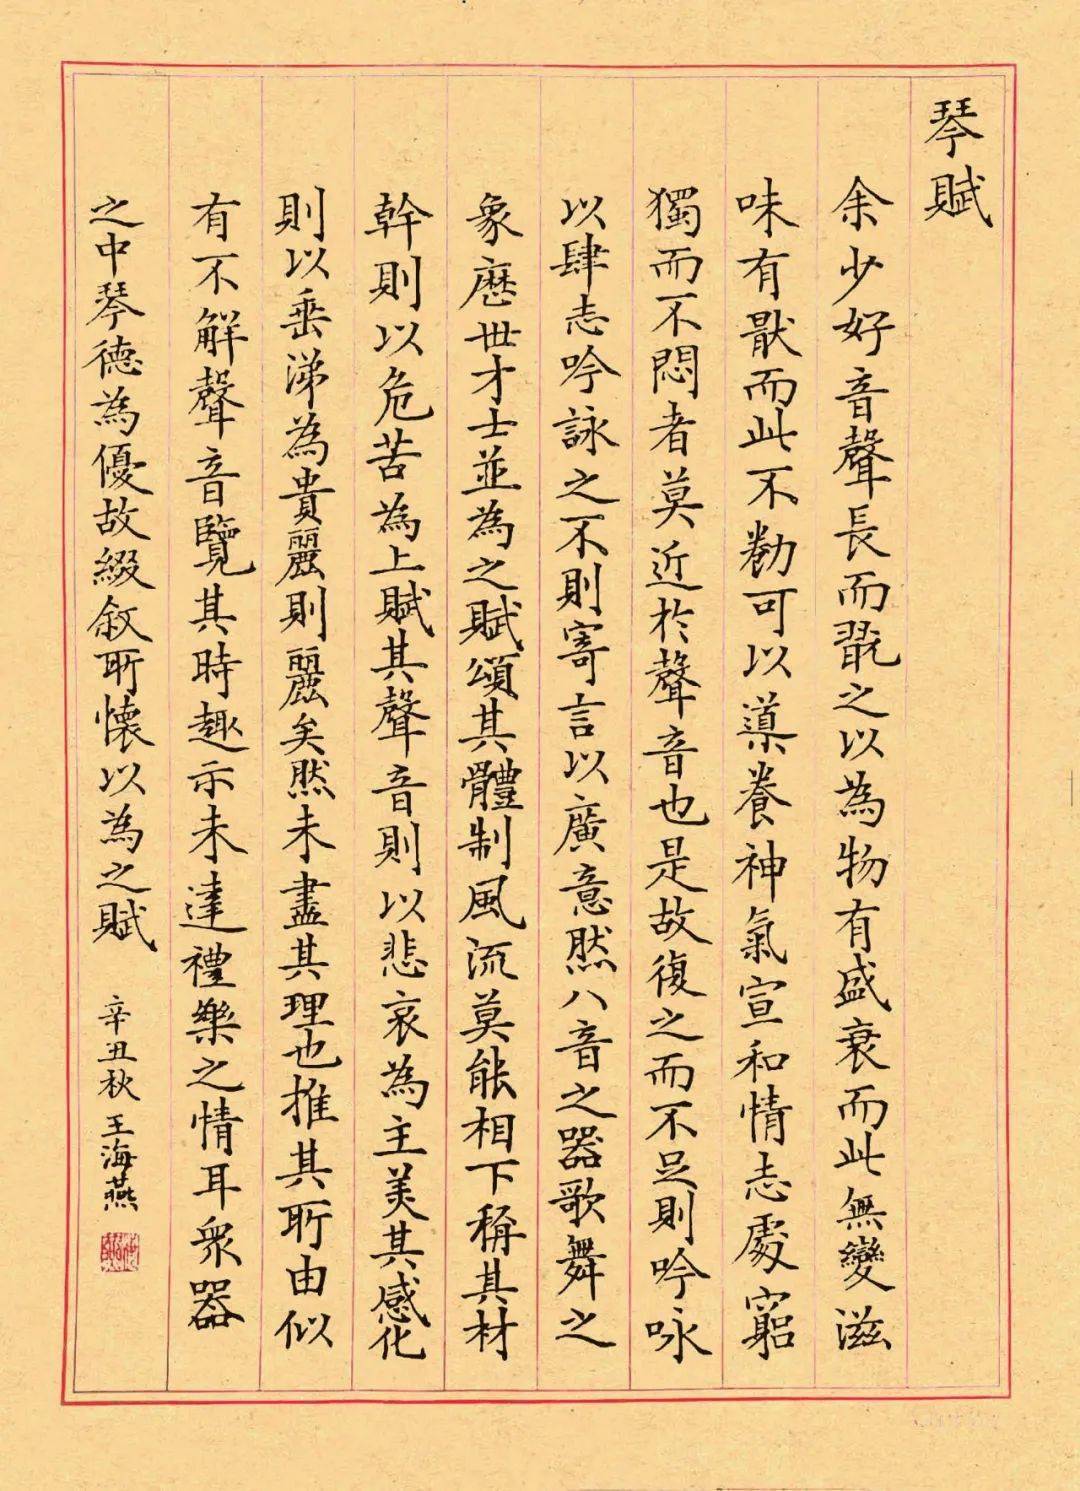 琴賦
余少好音聲長而翫之以為物有盛衰而此無變滋
味有猒而此不勌可以導養神氣宣和情志處窮
獨而不悶者莫近於聲音也是故復之而不足則吟咏
以肆志吟詠之不則寄言以廣意然八音之器歌舞之
象歷世才士並為之賦頌其體制風流莫能相下稱其材
幹則以危苦為上賦其聲音則以悲哀為主美其感化
則以垂涕為貴麗則麗矣然未盡其理也推其所由似
有不解聲音覽其時趣示未達禮樂之情耳眾器
之中琴德為優故綴敘所懷以為之賦
辛丑秋王海燕